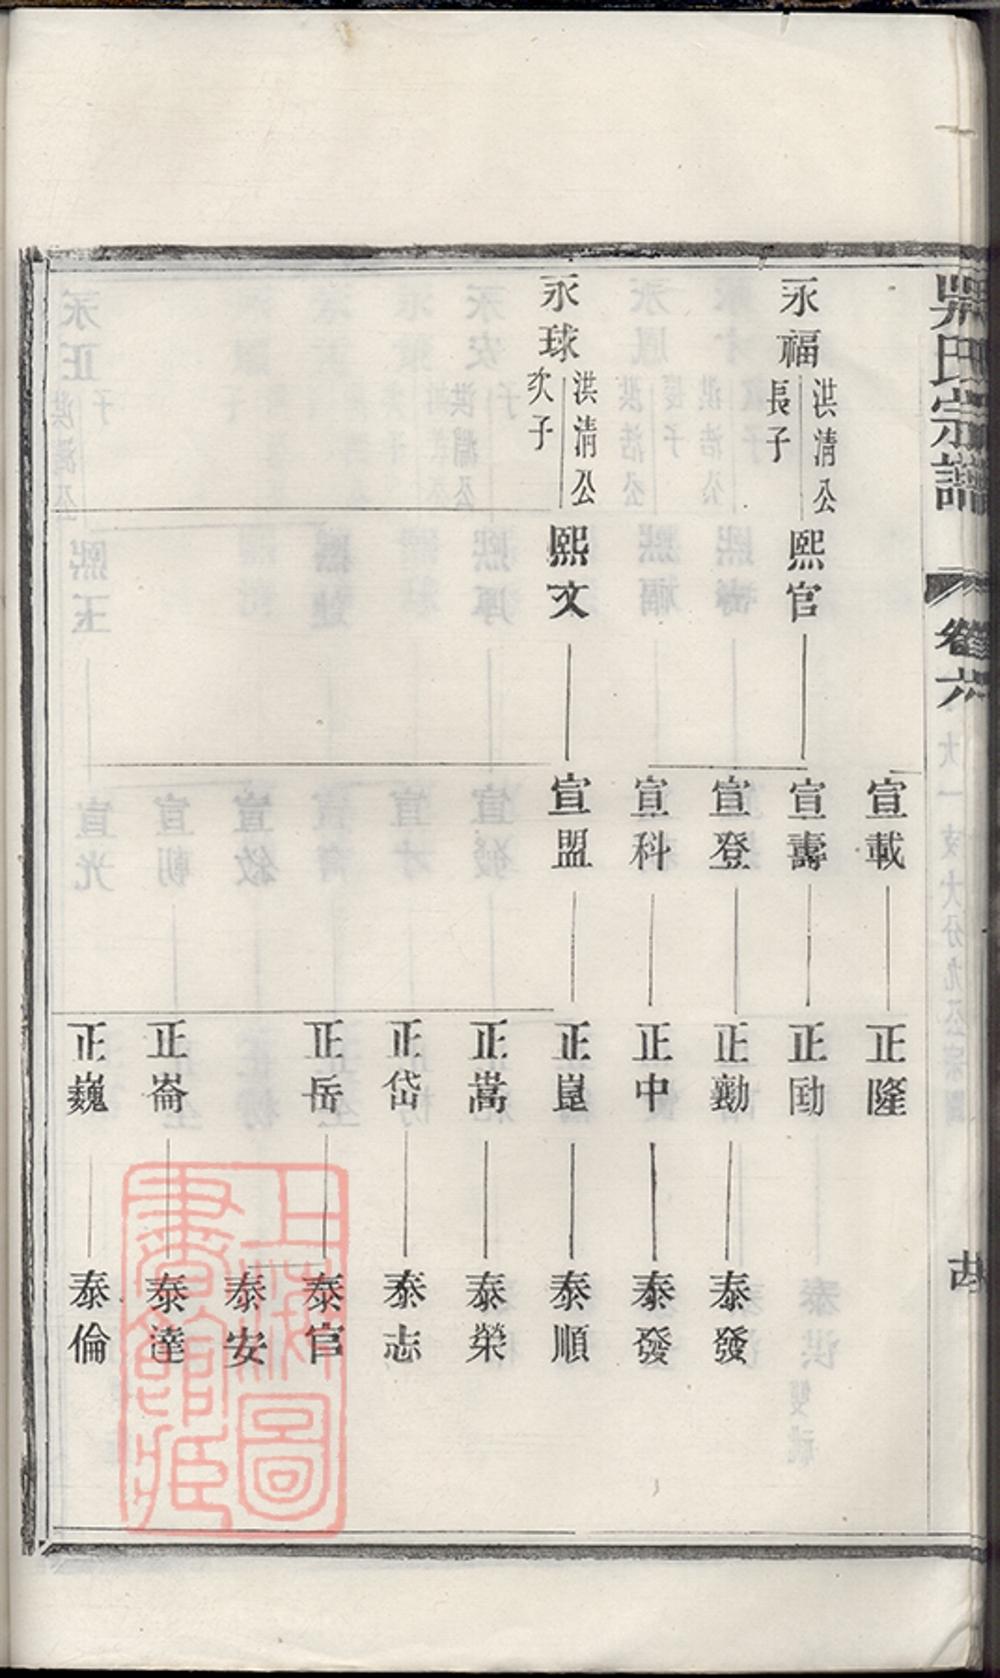 吳氏宗譜
卷六
永福
洪淸公
長子
永球
洪淸公
次子
熙官
熙文
宣載
宣壽
宣登
宣科
宣盟
正隆
正勛
正勷
正中
正崑
正嵩
正岱
正岳
正崙
正巍
泰發
泰發
泰順
泰榮
泰志
泰官
泰安
泰達
泰倫
上海圖
書館藏